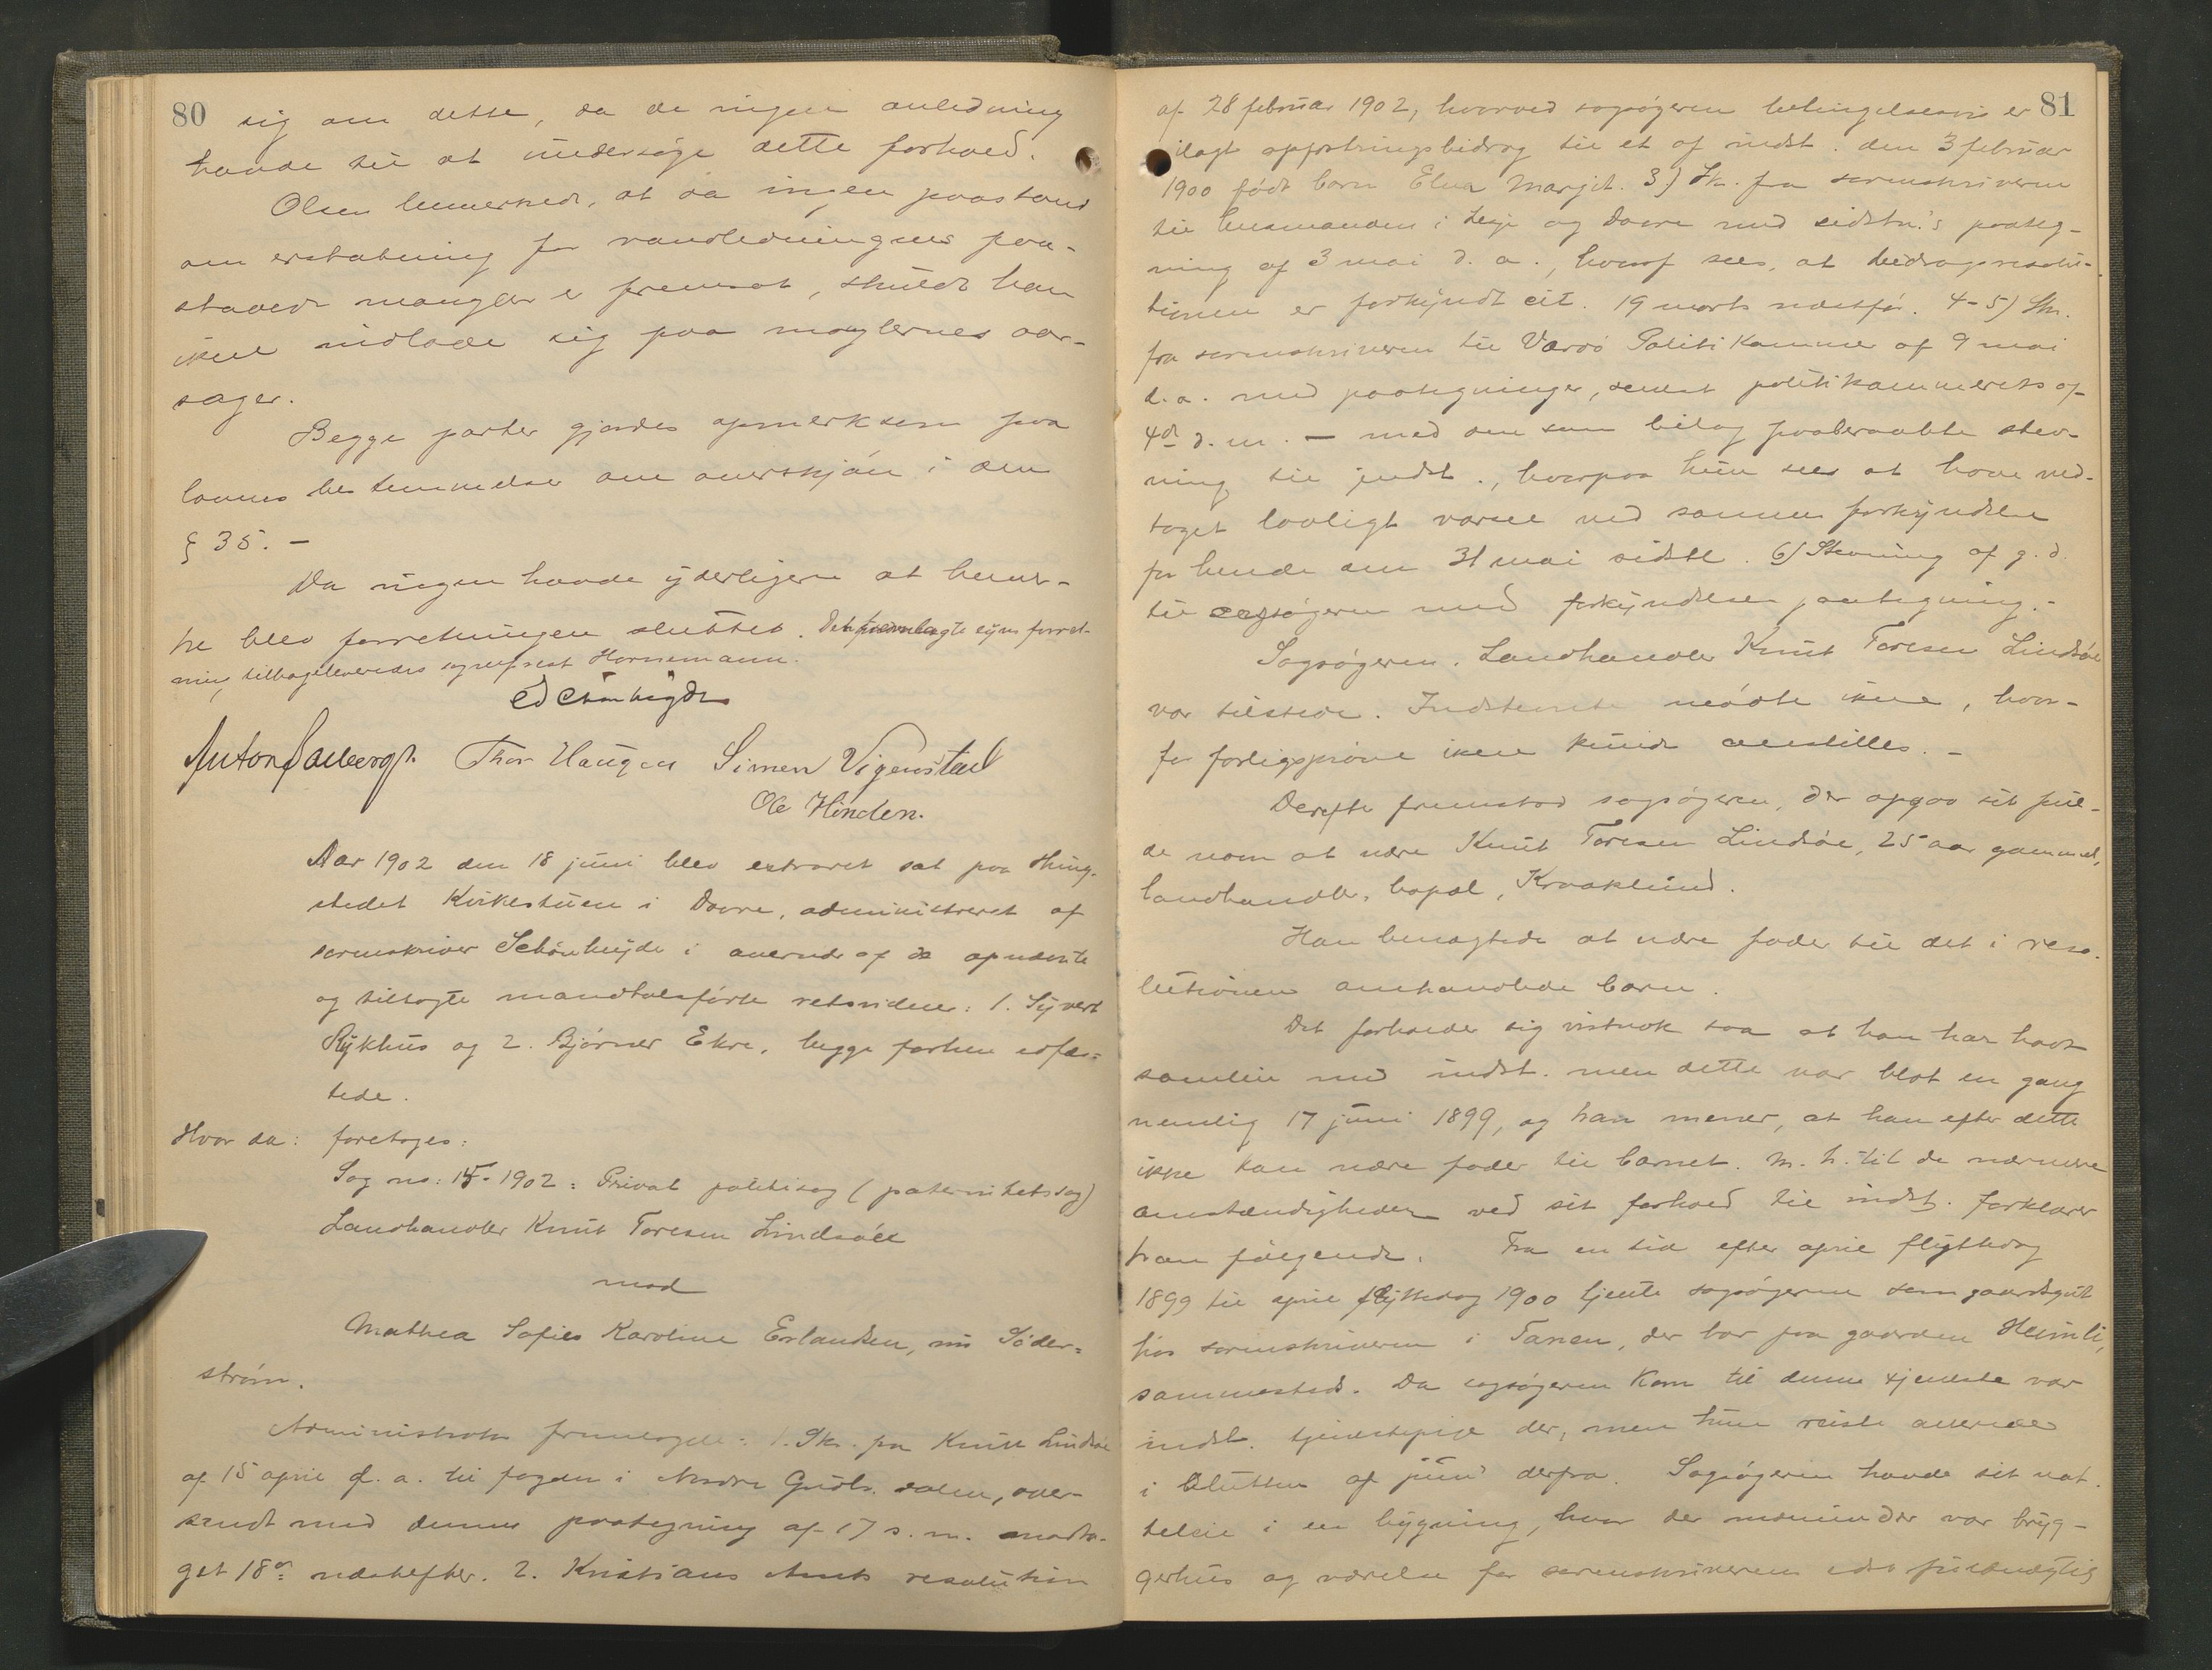 80
sig om dette, da de ingen anledning
havde til at undersøge dette forhold.
Olsen bemerkede, at da ingen paastand
om erstatning for vandledningens paa-
staaede mangler er fremsat, skulde han
ikke indlade sig paa manglernes aar-
sager.
Begge parter gjordes opmerksom paa
lovens bestemmelser om overskjøn i dens
§ 35. –
Da ingen havde yderligere at bemer-
ke blev forretningen sluttet. Den fremlagte syns forret-
ning tilbageleveredes sagfører Hornemann.
Ed Schønheyder
Anton Dalberg. Thor Haugen Simen Vigenstad
Ole Hinden.
Aar 1902 den 18 juni blev extraret sat paa thing-
stedet Kirkestuen i Dovre, administreret af
sorenskriver Schønheyder i overvær af de opnævnte
og tilsagte mandtalsførte retsvidner: 1. Syvert
Rykhus og 2. Bjørner Ekre, begge forhen edfæs-
tede.
Hvor da: foretoges:
Sag no: 15-1902: Privat politisag (paternitetssag)
Landhandler Knut Toresen Lindsøe
mod
Mathea Sofies Karoline Erlandsen, nu Söder-
strøm.
Administrator fremlagde: 1. Skr. fra Knut Lindsøe
af 15 april d. a. til fogden i Nordre Gudbr.dalen, over-
sendt med dennes paategning af 17 s. m. modta-
get 18de næstefter. 2. Kristians Amts resolution
81
af 28 februar 1902, hvorved sagsøgeren betingelsesvis er
ilagt opfostringsbidrag til et af indst. den 3 februar
1900 født barn Elna Margit. 3) Skr. fra sorenskriveren
til lensmanden i Lesje og Dovre med sidstn.'s paateg-
ning af 3 mai d. a., hvoraf sees, at bidragsresolu-
tionen er forkyndt cit. 19 marts næstfør. 4-5) Skr.
fra sorenskriveren til Vardø Politikammer af 9 mai
d. a. med paategninger, senest politikammerets af
4de d. m. – med den som bilag paaberaabte stev-
ning til indst., hvorpaa hun sees at have ved-
taget lovligt varsel ved sammes forkyndelse
for hende den 31 mai sidstl. 6) Stevning af g. d.
til sagsøgeren med forkyndelses paategning. –
Sagsøgeren. Landhandler Knut Toresen Lindsøe
var tilstede. Indstevnte mødte ikke, hvor-
for forligsprøve ikke kunde anstilles. –
Derefter fremstod sagsøgeren, der opgav sit ful-
de navn at være Knut Toresen Lindsøe, 25 aar gammel,
landhandler, bopæl, Kraaklund.
Han benægtede at være fader til det i reso-
lutionen omhandlede barn.
Det forholder sig vistnok saa at han har havt
samleie med indst. men dette var blot en gang
nemlig 17 juni 1899, og han mener, at han efter dette
ikke kan være fader til barnet. M. h. til de nærmere
omstændigheder ved sit forhold til indst. forklarer
han følgende. Fra en tid efter april flyttedag
1899 til april flyttedag 1900 tjente sagsøgeren som gaardsgut
hos sorenskriveren i Tanen, der bor paa gaarden Heimli,
sammesteds. Da sagsøgeren kom til denne tjeneste var
indst. tjenestepige der, men hun reiste allerede
i slutten af juni derfra. Sagsøgeren havde sit nat-
teleie i en bygning, hvor der nedenunder var bryg-
gerhus og værelse for sorenskriverens edsv. fuldmægtig